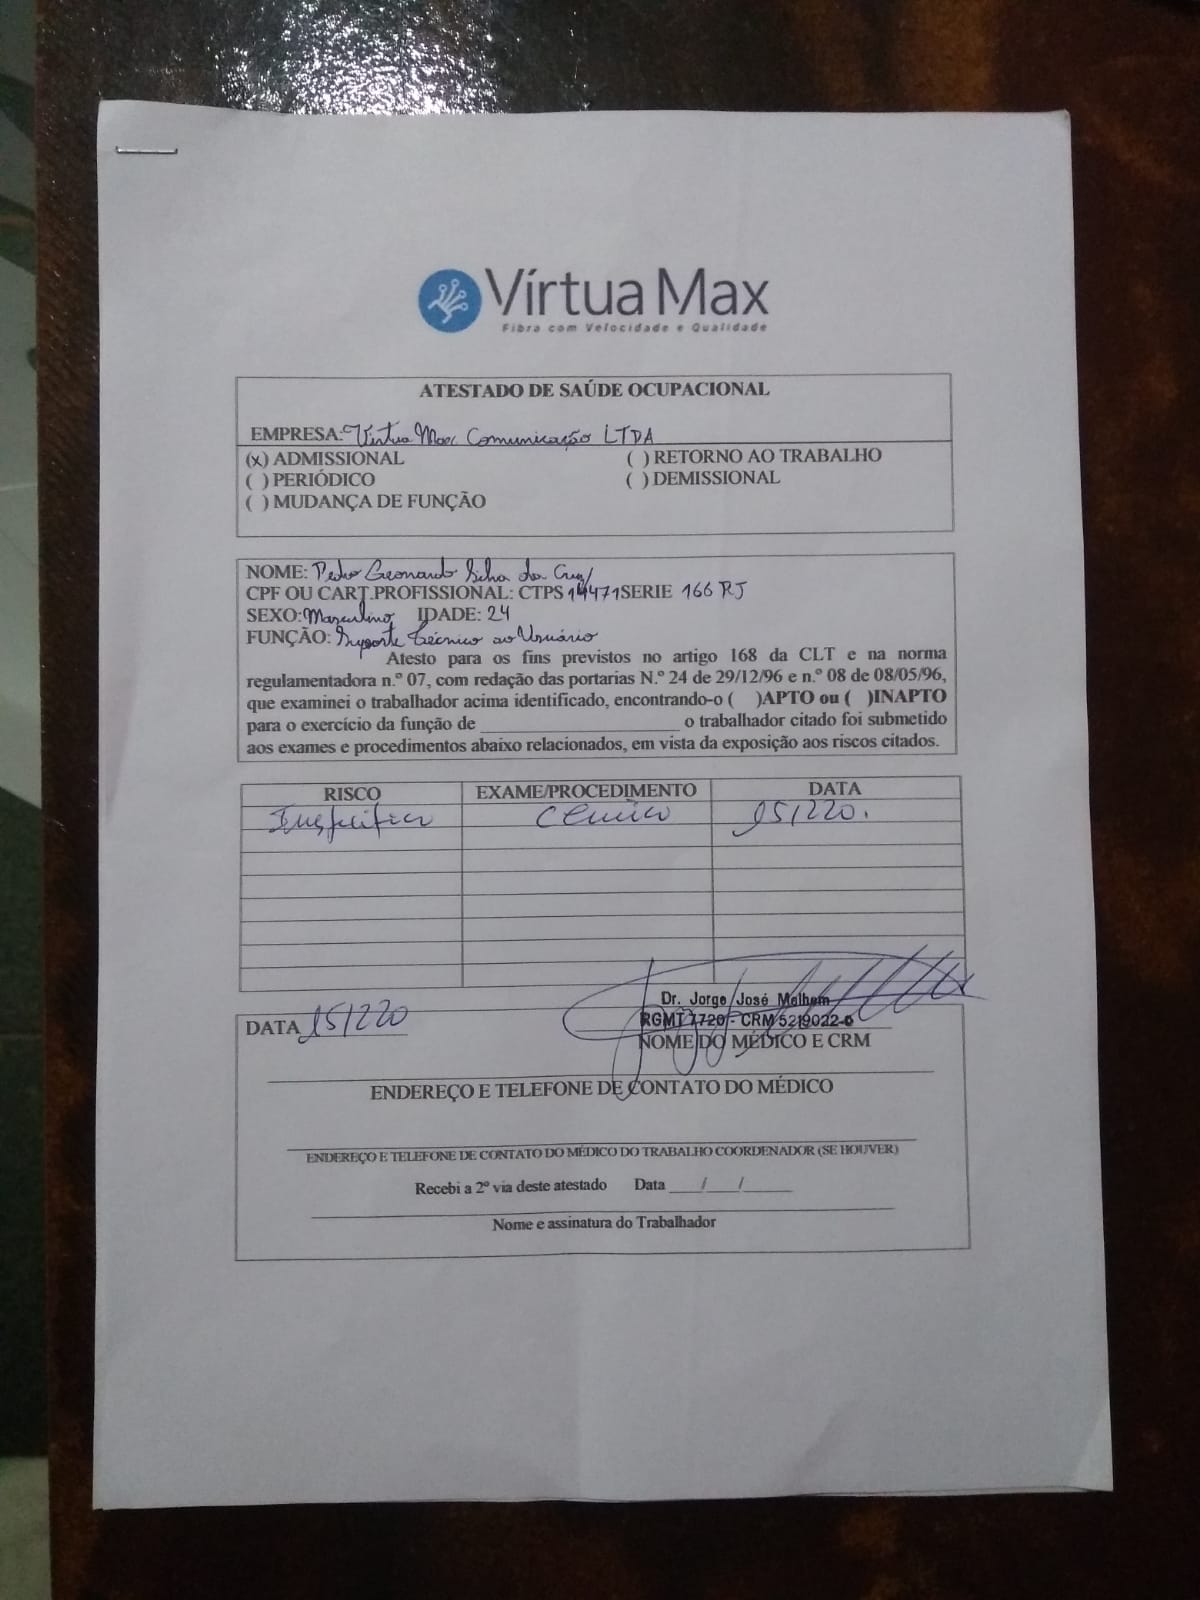 Vírtua Max
Fibra com Velocidade e Qualidade
ATESTADO DE SAÚDE OCUPACIONAL
EMPRESA: Virtua Max Comunicação LTDA
(x) ADMISSIONAL ( ) RETORNO AO TRABALHO
( ) PERIÓDICO ( ) DEMISSIONAL
( ) MUDANÇA DE FUNÇÃO
NOME: Pedro Leonardo Silva da Cruz
CPF OU CART.PROFISSIONAL: CTPS 14471 SERIE 166 RJ
SEXO: Masculino IDADE: 24
FUNÇÃO: Suporte Técnico ao Usuário
Atesto para os fins previstos no artigo 168 da CLT e na norma
regulamentadora n.º 07, com redação das portarias N.º 24 de 29/12/96 e n.º 08 de 08/05/96,
que examinei o trabalhador acima identificado, encontrando-o ( )APTO ou ( )INAPTO
para o exercício da função de ____________________ o trabalhador citado foi submetido
aos exames e procedimentos abaixo relacionados, em vista da exposição aos riscos citados.
RISCO EXAME/PROCEDIMENTO DATA
Inespecífico Clínico 15/220.
Dr. Jorge José Malhem
DATA 15/220 RGMT 7720 - CRM 5219022-6
NOME DO MÉDICO E CRM
ENDEREÇO E TELEFONE DE CONTATO DO MÉDICO
ENDEREÇO E TELEFONE DE CONTATO DO MÉDICO DO TRABALHO COORDENADOR (SE HOUVER)
Recebi a 2º via deste atestado Data ____/____/______
Nome e assinatura do Trabalhador